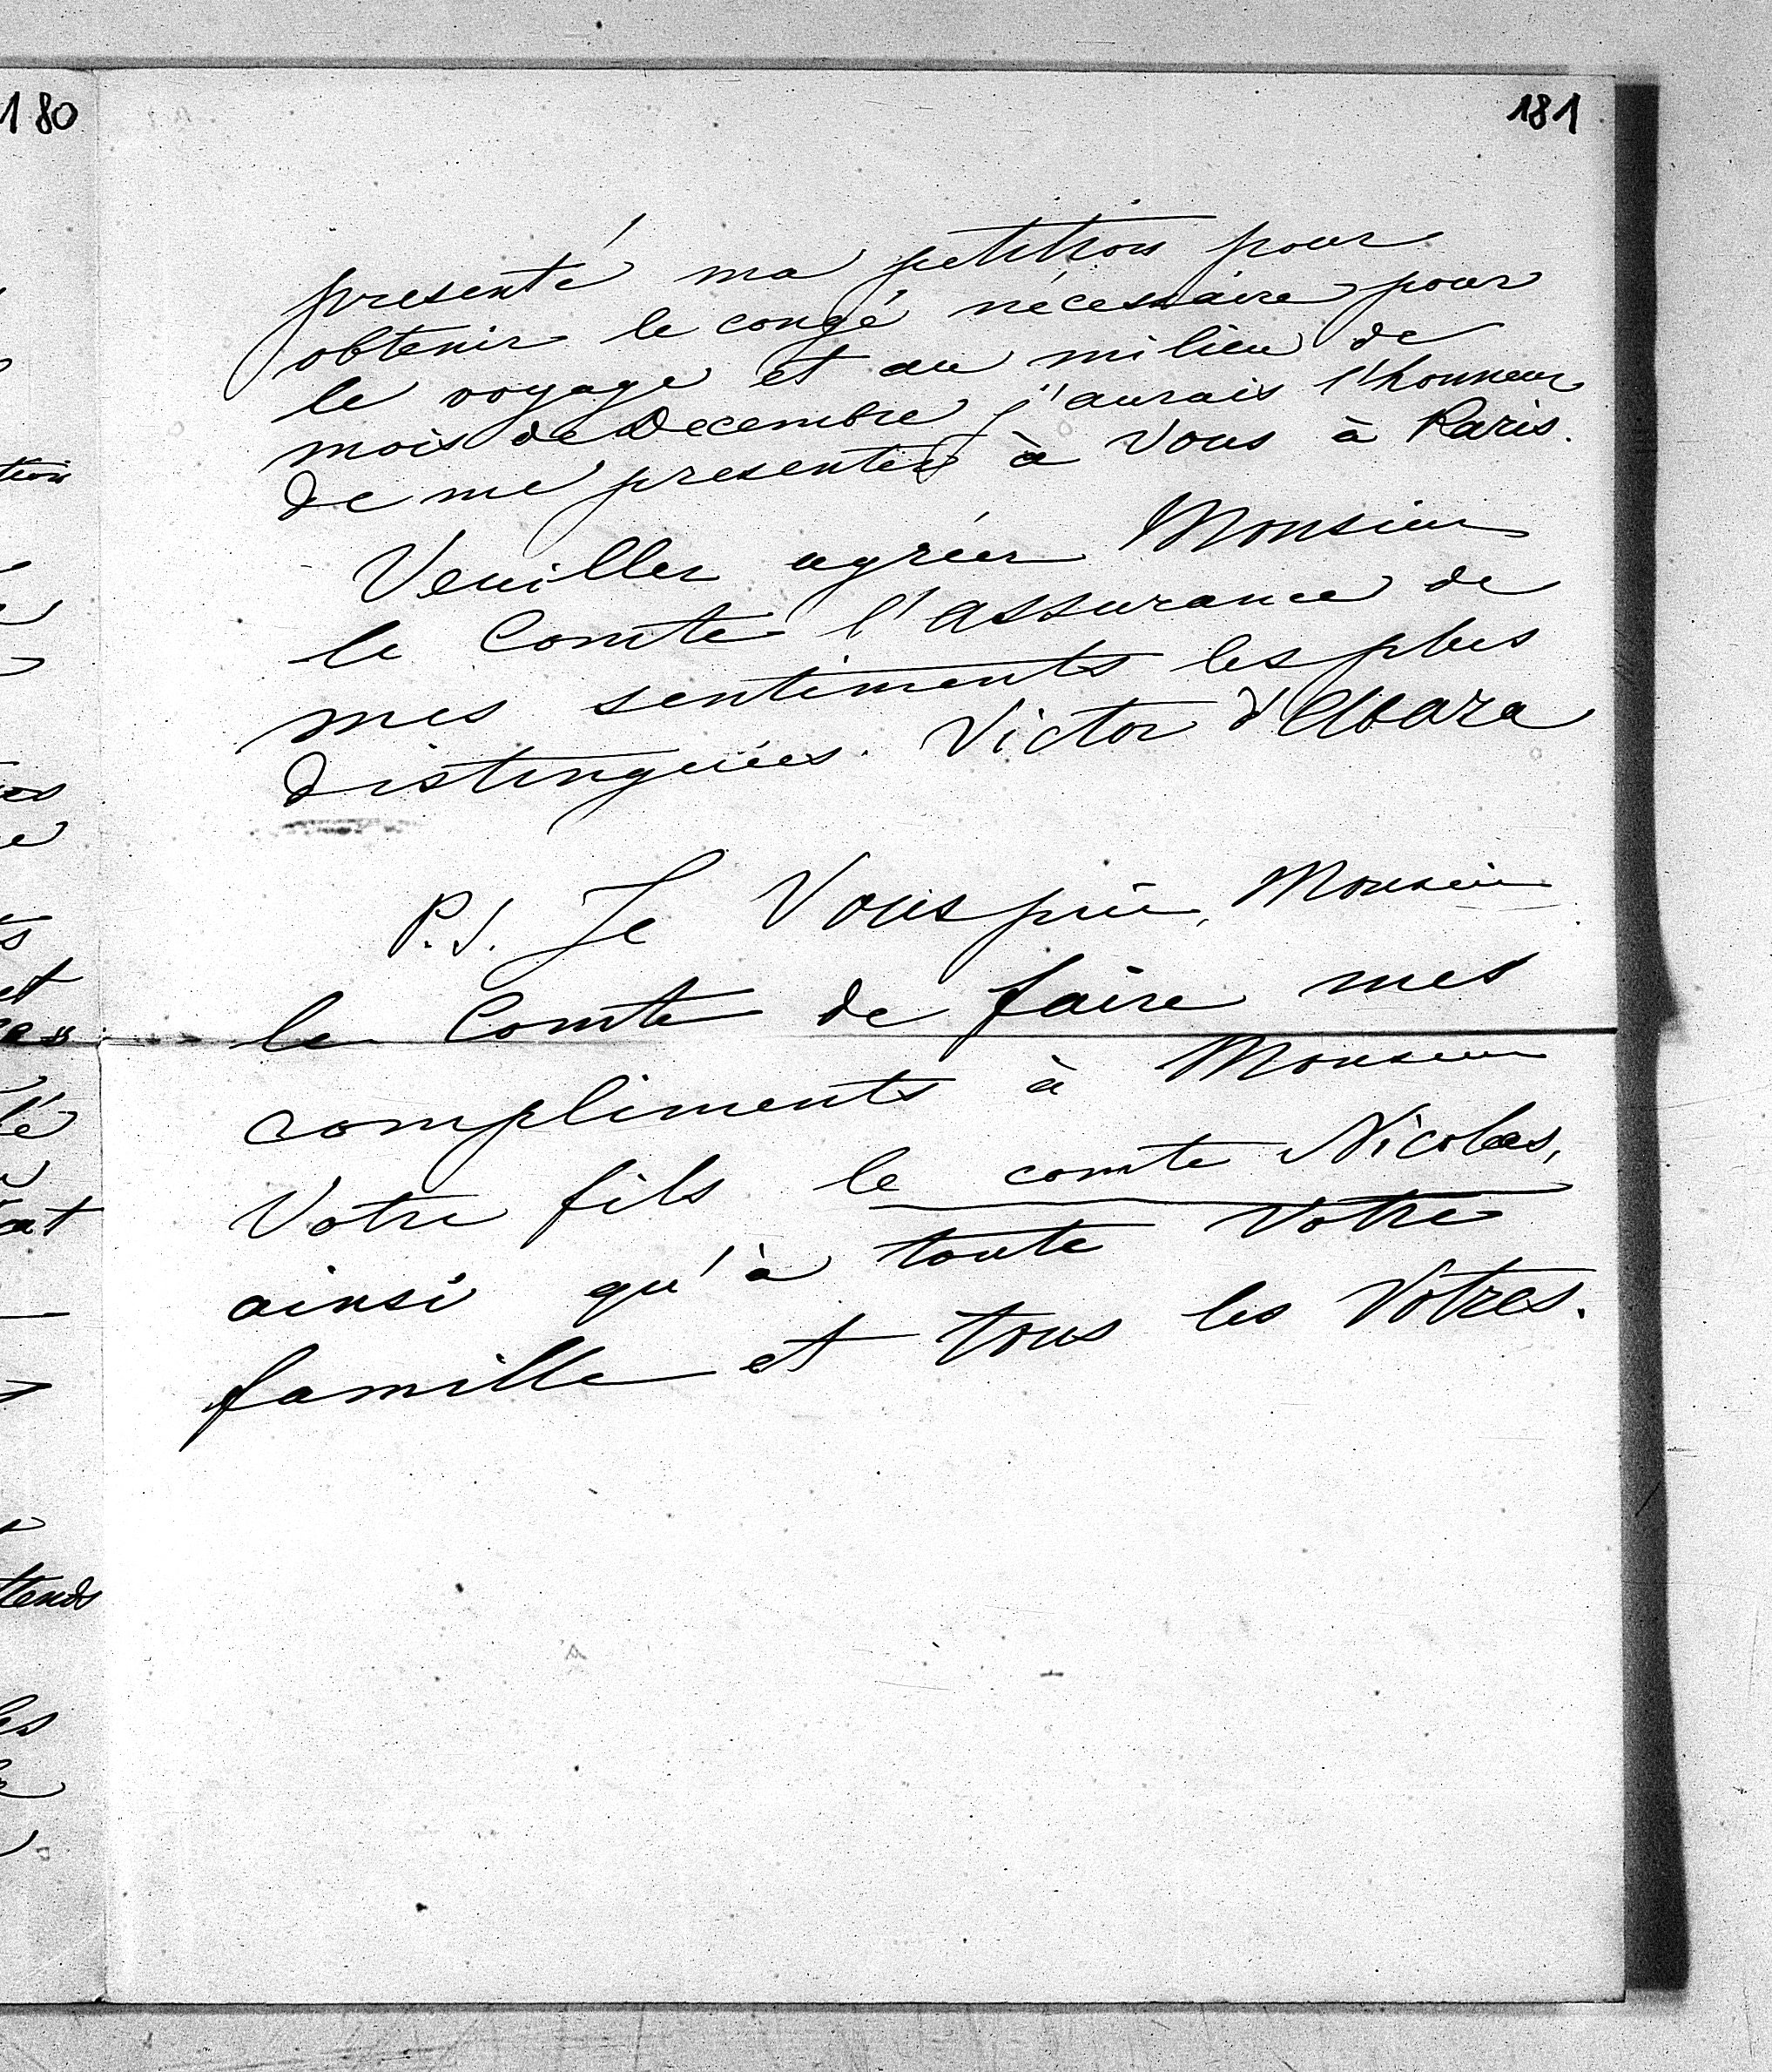 180
181
presenté ma petition pour
obtenir le congé nécessaire pour
le voyage et au milieu de
mois de Decembre j'aurais l'honneur
de me presenter à Vous à Paris.
Veuiller agréer Monsieur
le Comte l'assurance de
mes sentiments les plus
distinguées. Victor d'Abaza
P.S. Je Vous prie, Monsieur
le Comte de faire mes
compliments à Monsieur
Votre fils le comte Nicolas,
ainsi qu'à toute Votre
famille et tous les Votres.